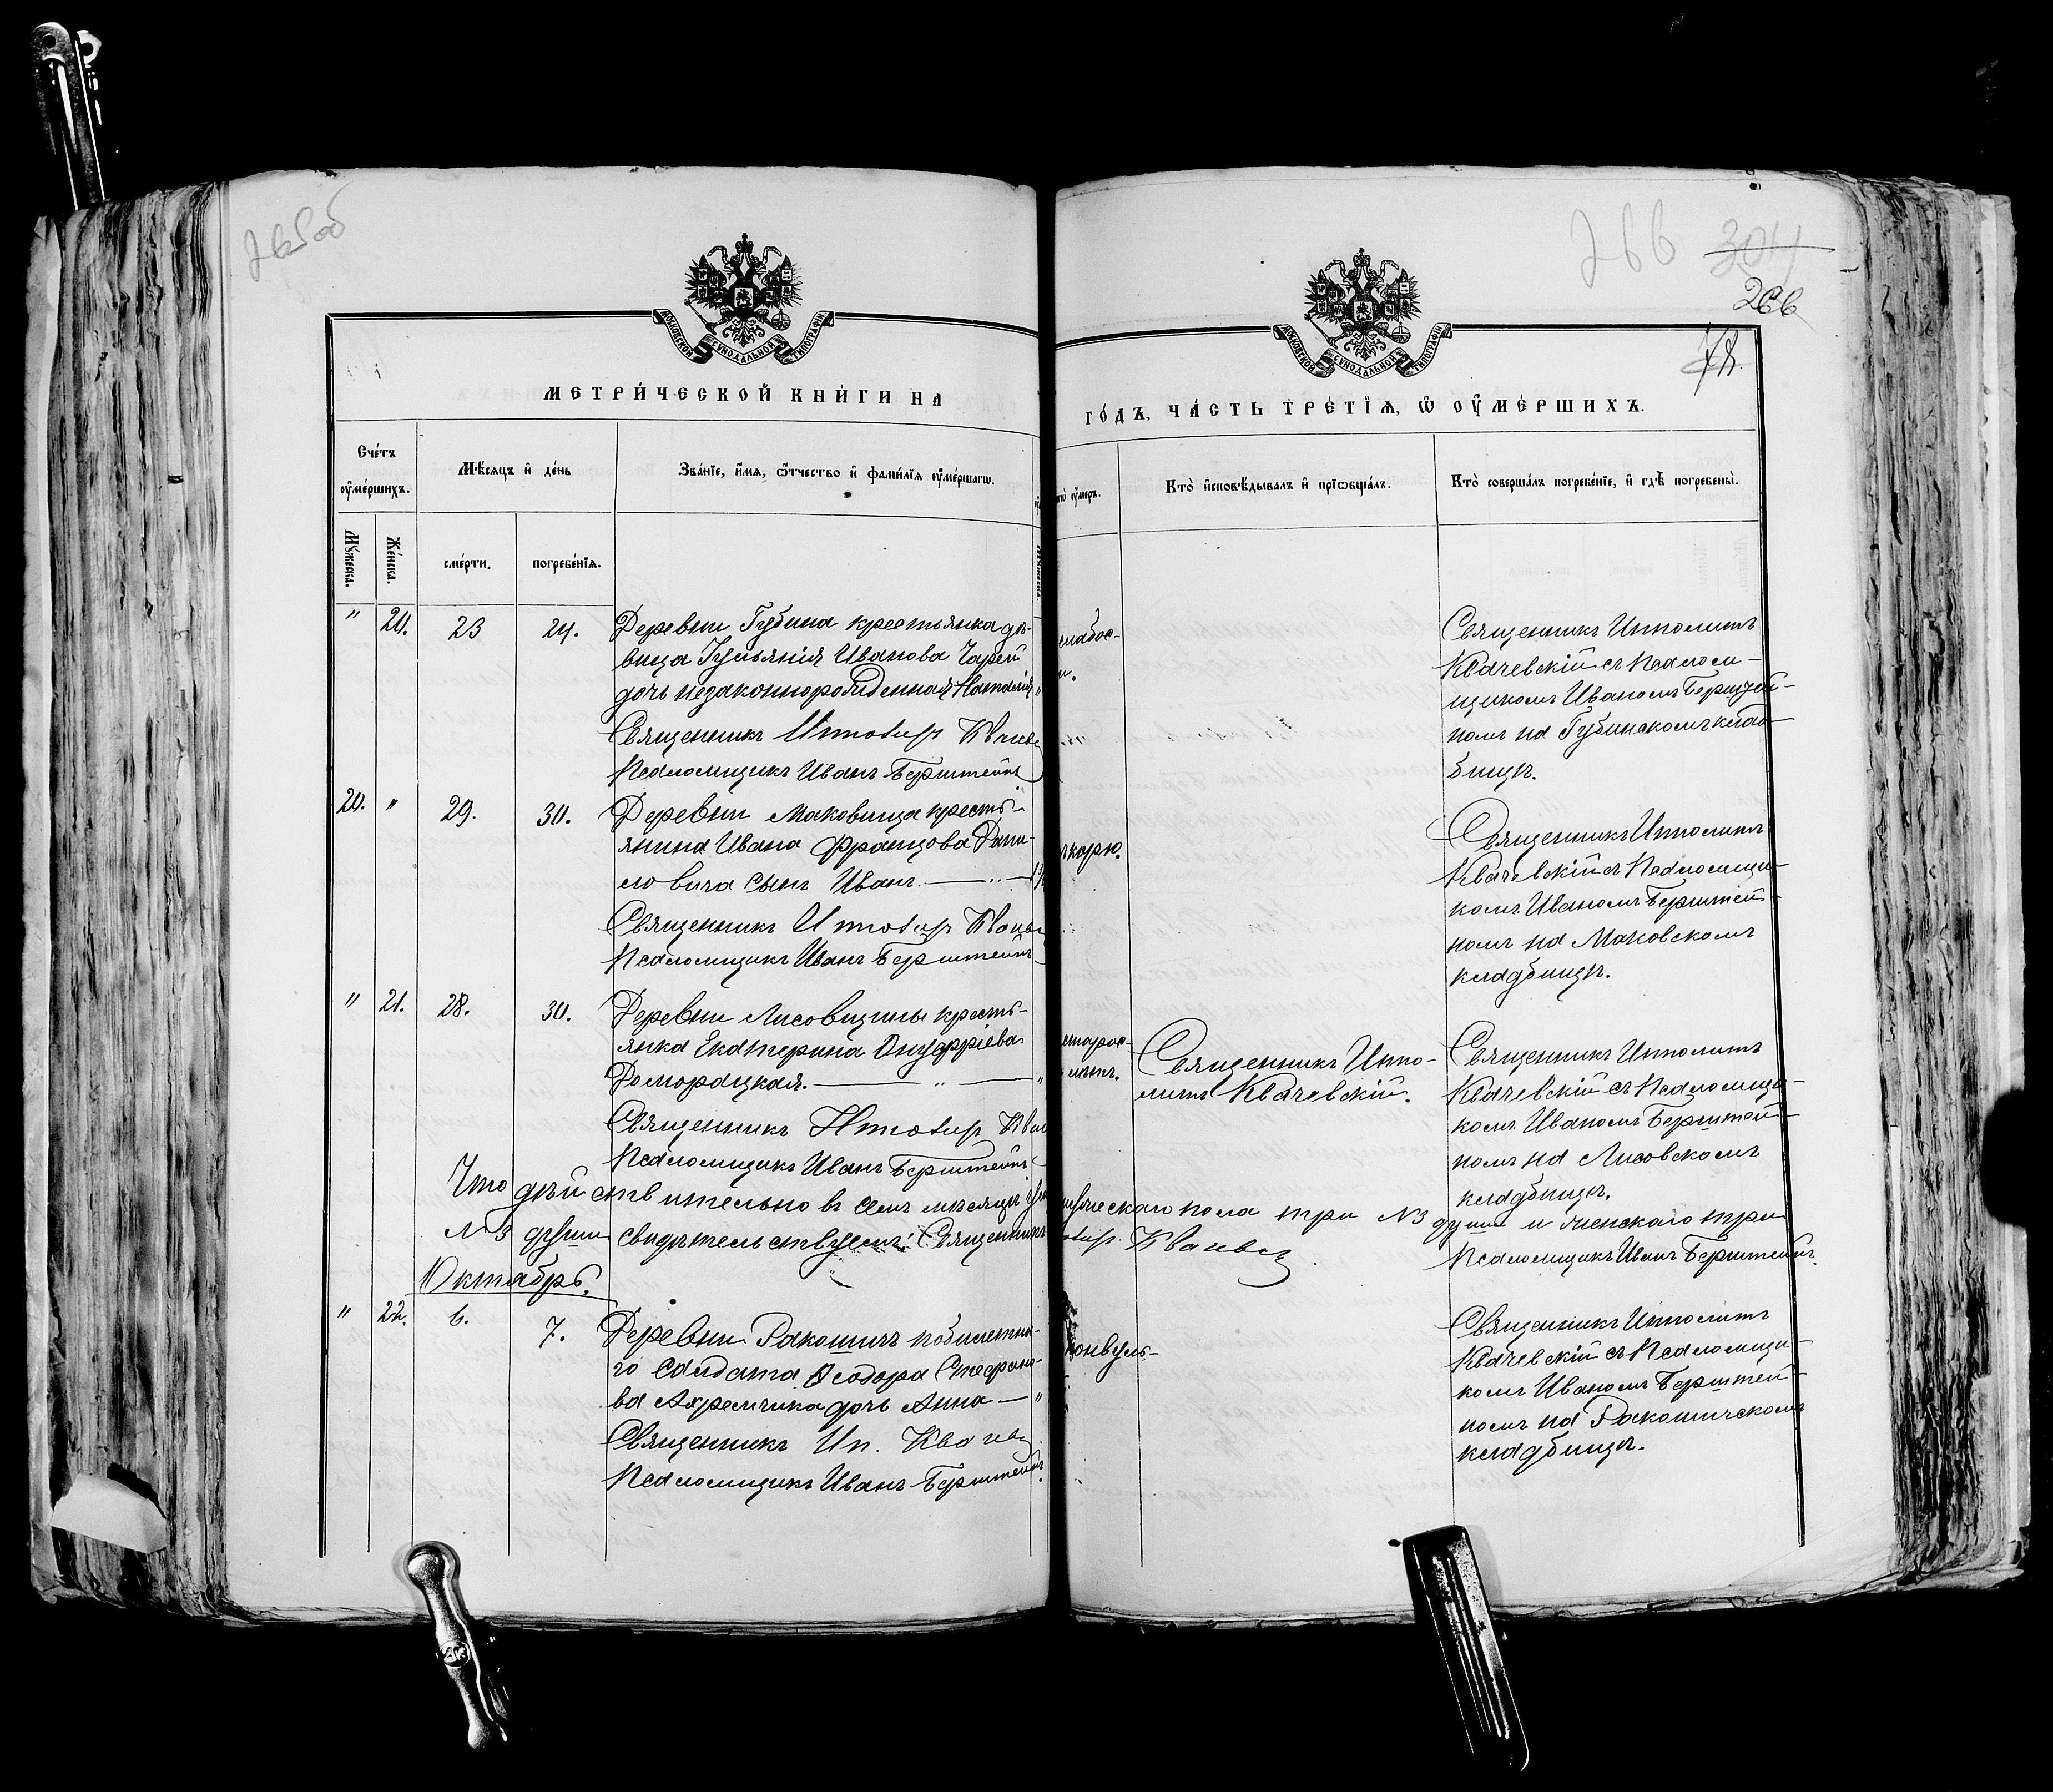 265об
266 304
266
78.
МОСКОВСКОЙ СѴНОДАЛЬНОЙ ТИПОГРАФІИ
МОСКОВСКОЙ СѴНОДАЛЬНОЙ ТИПОГРАФІИ
МЕТРИ́ЧЕСКОЙ КНИ́ГИ НА
ГО́ДЪ, ЧА́СТЬ ТРЕ́ТІѦ, Ѿ ОУ҆МЕ́РШИХЪ.
Сче́тъ
оу҆ме́ршихъ.
Мѣ́сѧцъ и҆ де́нь
Зва́нїе, и҆́мѧ, ѻ҆́тчество и҆ фами́лїѧ оу҆ме́ршагѡ.
оу҆меръ.
Кто̀ и҆сповѣ́дывалъ и҆ прїѡбща́лъ.
Кто̀ соверша́лъ погребе́нїе, и҆ гдѣ̀ погребены̀.
Мꙋ́жеска.
Же́нска.
сме́рти.
погребе́нїѧ.
" 20. 23 24. Деревни Губина крестьянка дѣ-
вица Іульянія Иванова Чарей
дочь незаконнорожденная Наталія "
Священникъ Ипполитъ Кваче
Псаломщикъ Иванъ Берштейнъ
слабос-
и.
Священникъ Ипполитъ
Квачевскій съ Псаломи-
щикомъ Иваномъ Берштей-
номъ на Губинскомъ клад-
бищѣ.
20. " 29. 30. Деревни Маковища кресть-
янина Ивана Францова Дани-
ловича сынъ Иванъ. — " —
Священникъ Ипполитъ Кваче
Псаломщикъ Иванъ Берштейнъ
корю.
Священникъ Ипполитъ
Квачевскій съ Псаломщи-
комъ Иваномъ Берштей-
номъ на Маковскомъ
кладбищѣ.
" 21. 28. 30. Деревни Лисовщины кресть-
янка Екатерина Онуфріева
Доморацкая. — " — "
Священникъ Ипполитъ Квач
Псаломщикъ Иванъ Берштейнъ
старос-
лѣтъ.
Священникъ Иппо-
литъ Квачевскій.
Священникъ Ипполитъ
Квачевскій съ Псаломщи-
комъ Иваномъ Берштей-
номъ на Лисовскомъ
кладбищѣ.
Что дѣйствительно въ семъ мѣсяцѣ ум мужескаго пола три №3 души и женскаго три
№3 души свидѣтельствуемъ: Священникъ Квачевс Псаломщикъ Иванъ Берштейнъ.
Октябрь.
" 22. 6. 7. Деревни Ракошичъ побилетна-
го салдата Ѳеодора Стефано-
ва Ахремчика дочь Анна — "
Священникъ Ип. Квачев
Псаломщикъ Иванъ Берштейнъ.
конвуль-
Священникъ Ипполитъ
Квачевскій съ Псаломщи-
комъ Иваномъ Берштей-
номъ на Ракошичскомъ
кладбищѣ.